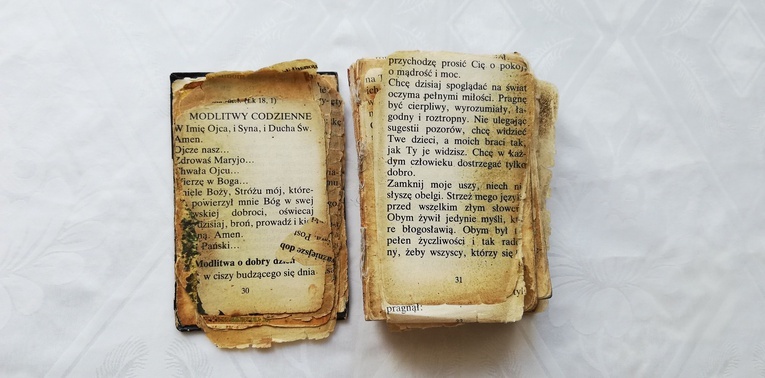 (Łk 18, 1)
MODLITWY CODZIENNE
W Imię Ojca, i Syna, i Ducha Św.
Amen.
Ojcze nasz...
Zdrowaś Maryjo...
Chwała Ojcu...
Wierzę w Boga...
niele Boży, Stróżu mój, które-
powierzył mnie Bóg w swej
wskiej dobroci, oświecaj
dzisiaj, broń, prowadź i ki
ną. Amen.
ł Pański...
Modlitwa o dobry dzień
w ciszy budzącego się dnia
30
przychodzę prosić Cię o pokój
o mądrość i moc.
Chcę dzisiaj spoglądać na świat
oczyma pełnymi miłości. Pragnę
być cierpliwy, wyrozumiały, ła-
godny i roztropny. Nie ulegając
sugestii pozorów, chcę widzieć
Twe dzieci, a moich braci tak,
jak Ty je widzisz. Chcę w każ-
dym człowieku dostrzegać tylko
dobro.
Zamknij moje uszy, niech ni
słyszę obelgi. Strzeż mego języ
przed wszelkim złym słowe
Obym żywił jedynie myśli, kt
re błogosławią. Obym był
pełen życzliwości i tak rado
ny, żeby wszyscy, którzy się
31
pragnął: